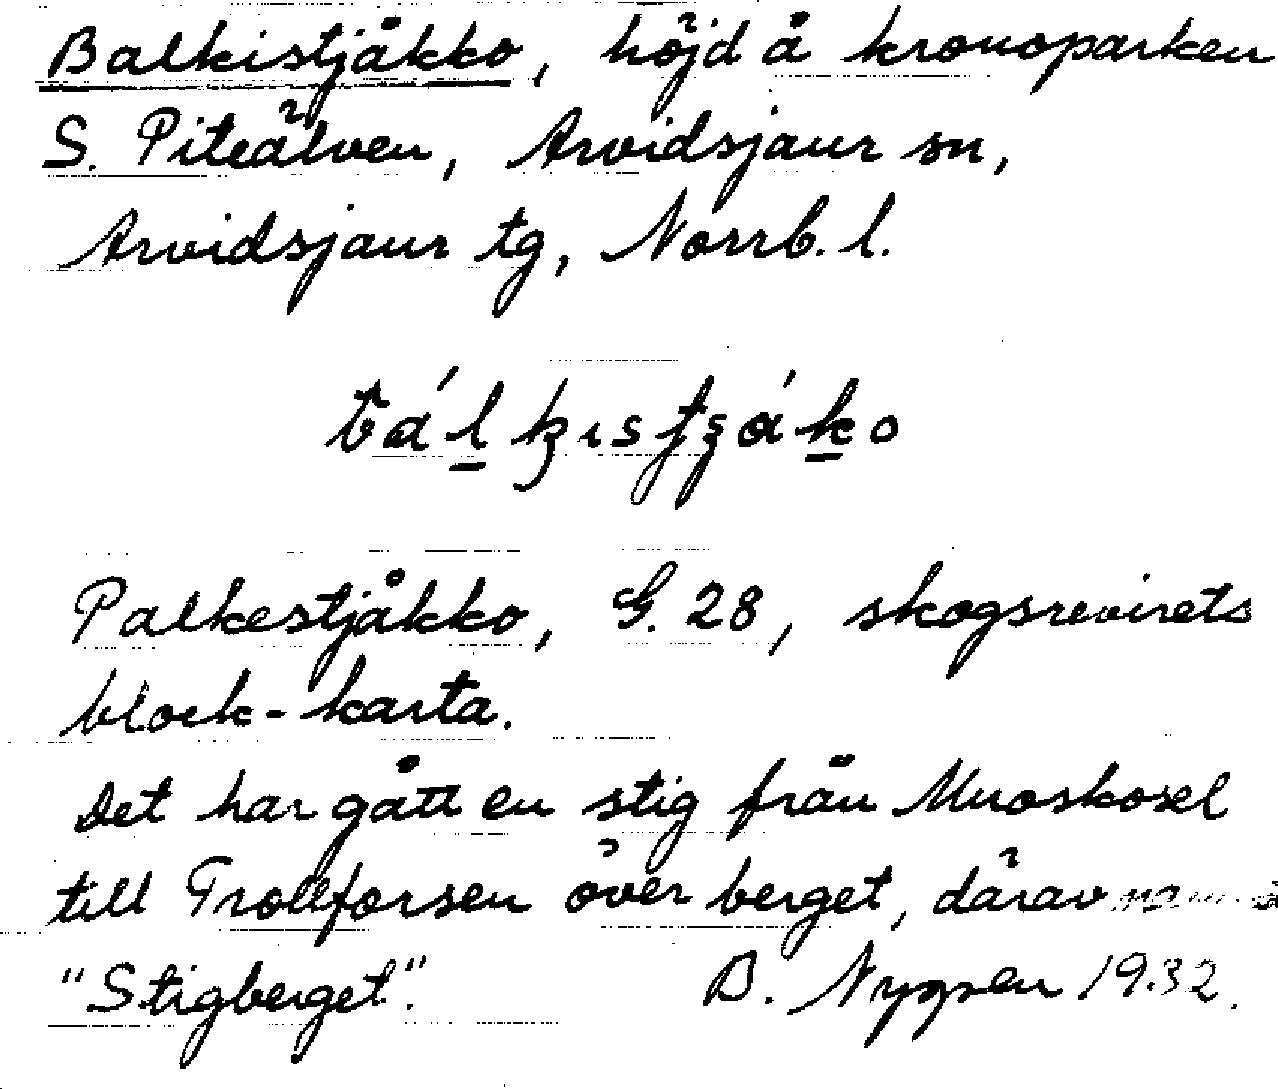 Balkistjåkko, höjd å kronoparken
S. Piteälven, Arvidsjaur sn,
Arvidsjaur tg, Norrb. l.
Palkestjåkko, G. 28, skogsrevirets
block-karta.
Det har gått en stig från Muoskosel
till Trollforsen över berget, därav
"Stigberget".
B. Nygren 1932.